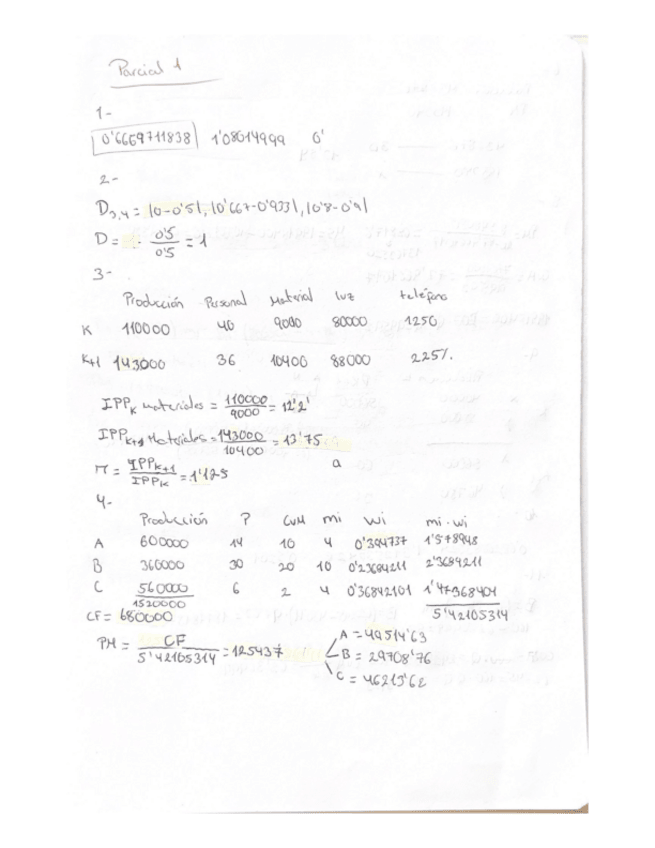 Parcial 1
1-
0'6669711838 1'08014999 0'
2-
D3,4 = |0-0'5|, |0'667-0'933|, |0'8-0'9|
D = 0'5/0'5 = 1
3-
Producción Personal Material luz teléfono
K 110000 40 9000 80000 1250
K+1 143000 36 10400 88000 225%
IPPK materiales = 110000/9000 = 12'2'
IPPK+1 Materiales = 143000/10400 = 13'75
π = IPPK+1/IPPK = 1'125 a
4-
Producción P CVM mi wi mi·wi
A 600000 14 10 4 0'394737 1'578948
B 360000 30 20 10 0'23684211 2'3684211
C 560000 6 2 4 0'36842101 1'47368401
1520000 5'42105314
CF = 680000
PM = CF/5'42105314 = 125437
A = 49514'63
B = 29708'76
C = 46213'62